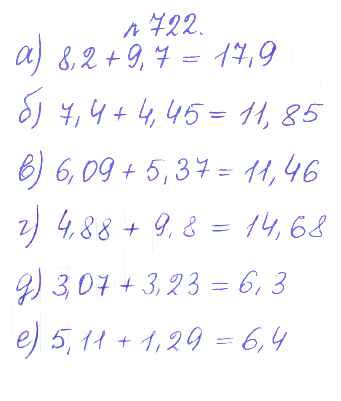 n 722.
а) 8,2 + 9,7 = 17,9
б) 7,4 + 4,45 = 11,85
в) 6,09 + 5,37 = 11,46
г) 4,88 + 9,8 = 14,68
д) 3,07 + 3,23 = 6,3
е) 5,11 + 1,29 = 6,4